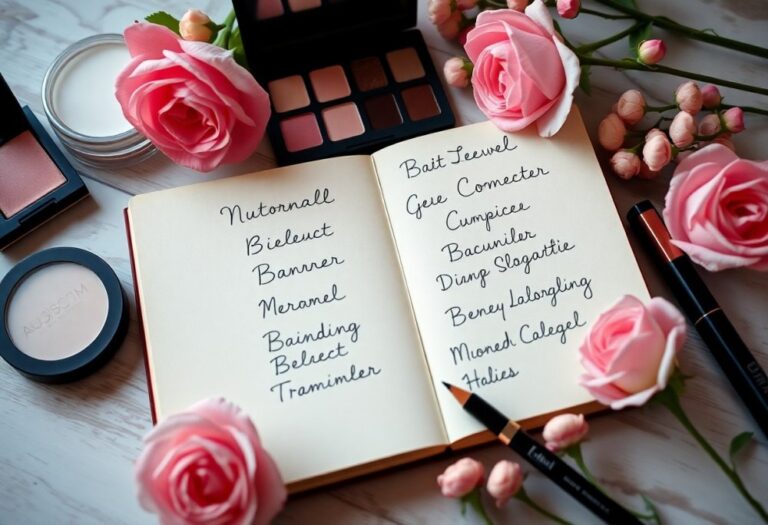 Nutornall
Bieleuct
Bannrer
Meramel
Bainding
Beleuct
Tramimler
Bait Jeewel
Geue Comecter
Cumpicee
Bacuniler
Dinnp Slogarttie
Beney Lalorgling
Muoned Calegel
Halies